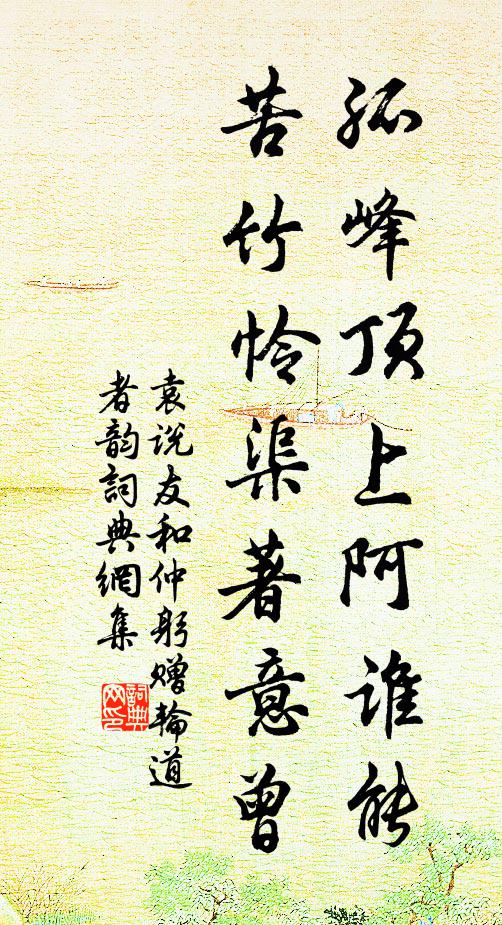 孤峰顶上阿谁能
苦竹怜渠著意曾
袁说友和仲躬赠轮道
者韵词典网集
词典
网印